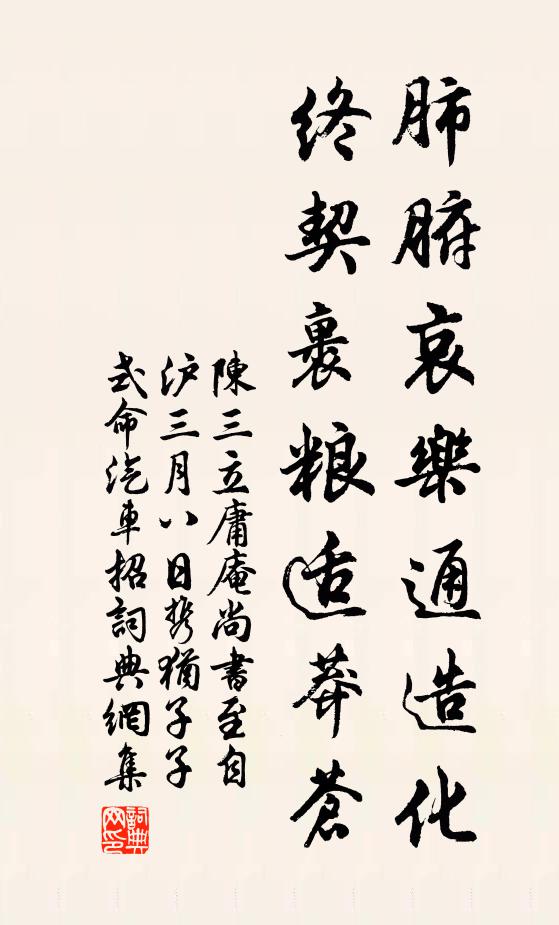 肺腑哀樂通造化
終契裹粮适莽蒼
陳三立庸庵尚書至自
沪三月八日携猶子子
式命汽車招詞典網集
詞典网印